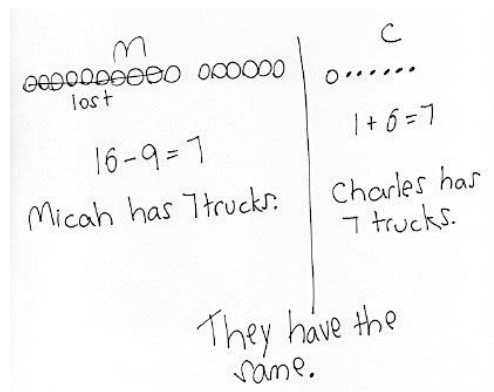 M
C
lost
16-9=7
1+6=7
Micah has 7 trucks.
Charles has
7 trucks.
They have the
same.